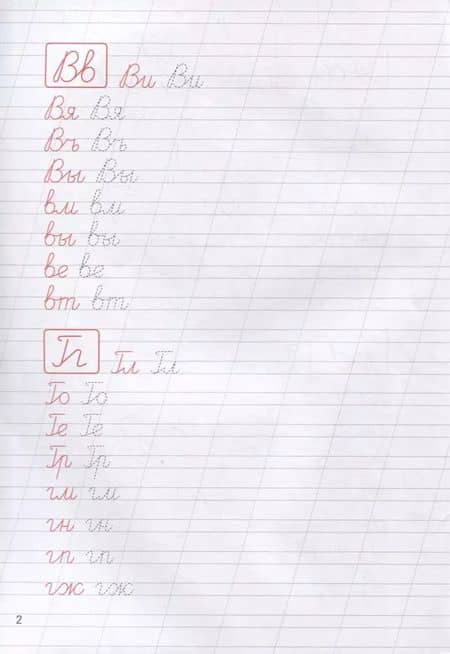 Вв Ви Ви
Вя Вя
Въ Въ
Вы Вы
вм вм
вы вы
ве ве
вт вт
Гг Гл Гл
Го Го
Ге Ге
Гр Гр
гм гм
гн гн
гп гп
гж гж
2